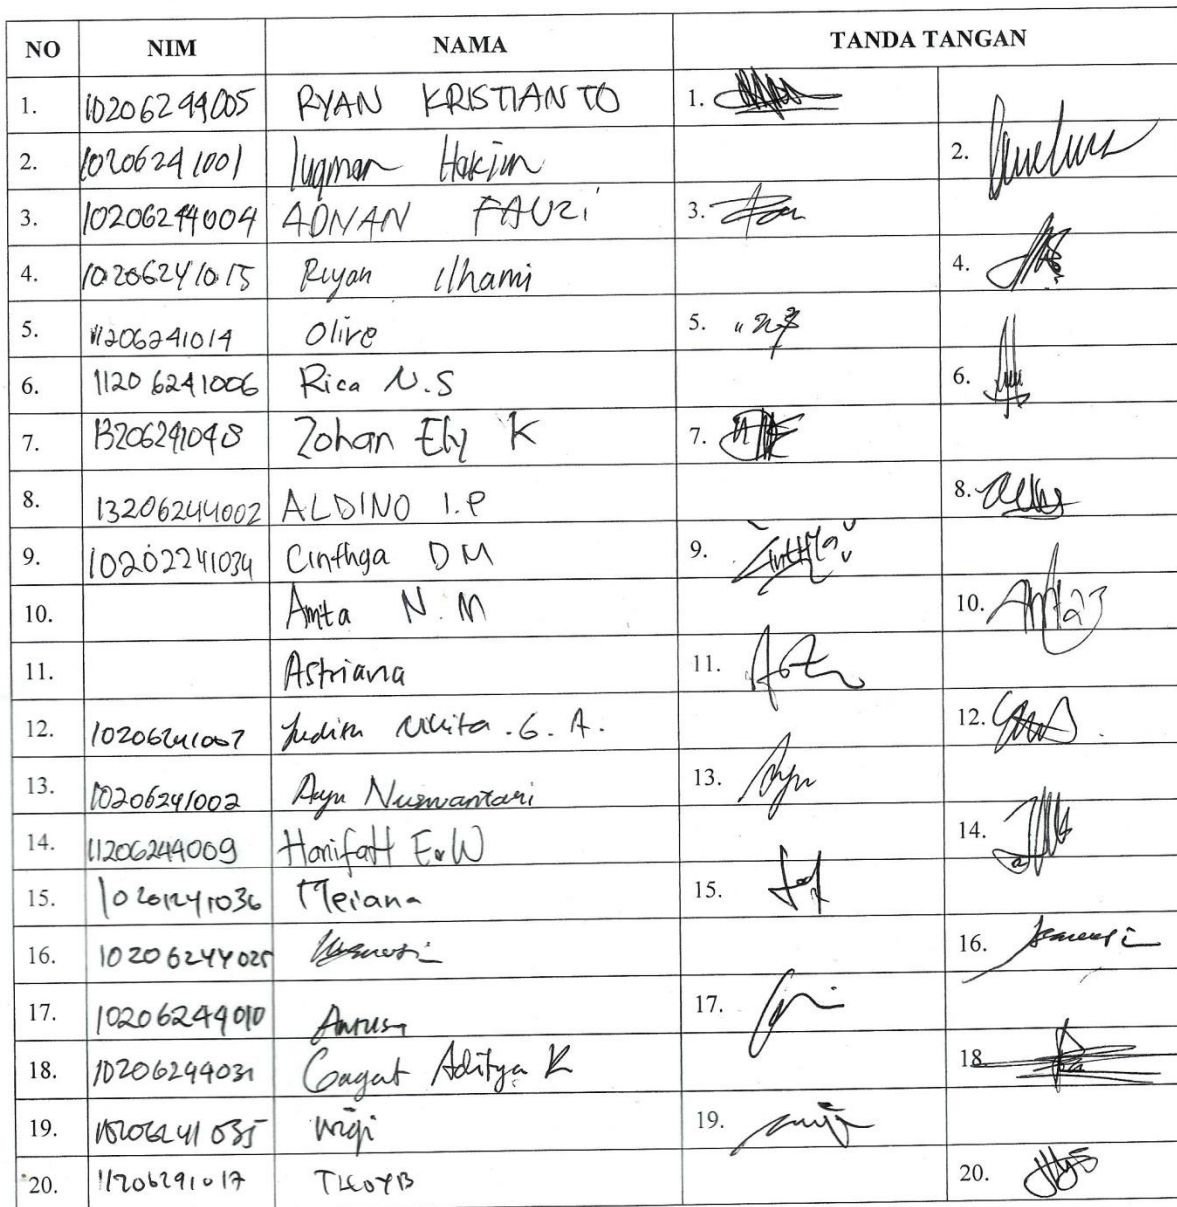 NO NIM NAMA TANDA TANGAN
1. 10206244005 RYAN KRISTIANTO 1.
2. 10206241001 luqman Hakim 2.
3. 10206244004 ADNAN FAUZi 3.
4. 10206241015 Riyan ilhami 4.
5. 11206241014 Olive 5.
6. 11206241006 Rica N.S 6.
7. 13206241048 Zohan Ely K 7.
8. 13206244002 ALDINO I.P 8.
9. 10202241034 Cinthya DM 9.
10. Amita N.M 10.
11. Astriana 11.
12. 10206241007 Judith Nikita .G. A. 12.
13. 10206241002 Ayu Nuswantari 13.
14. 11206244009 Hanifah E.W 14.
15. 10201241036 Meiana 15.
16. 10206244025 16.
17. 10206244010 17.
18. 10206244031 Gagat Aditya K 18.
19. Wigi 19.
20. 11206241017 20.